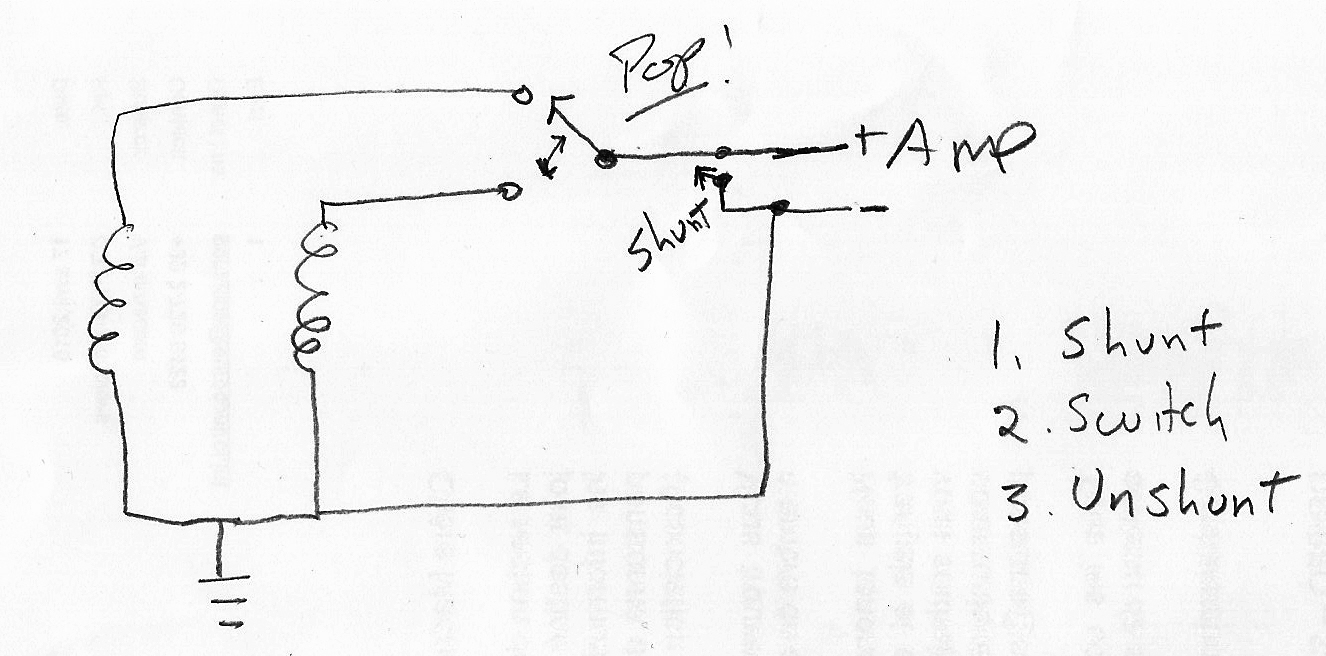 Pop!
+ Amp
-
Shunt
1. Shunt
2. Switch
3. Unshunt